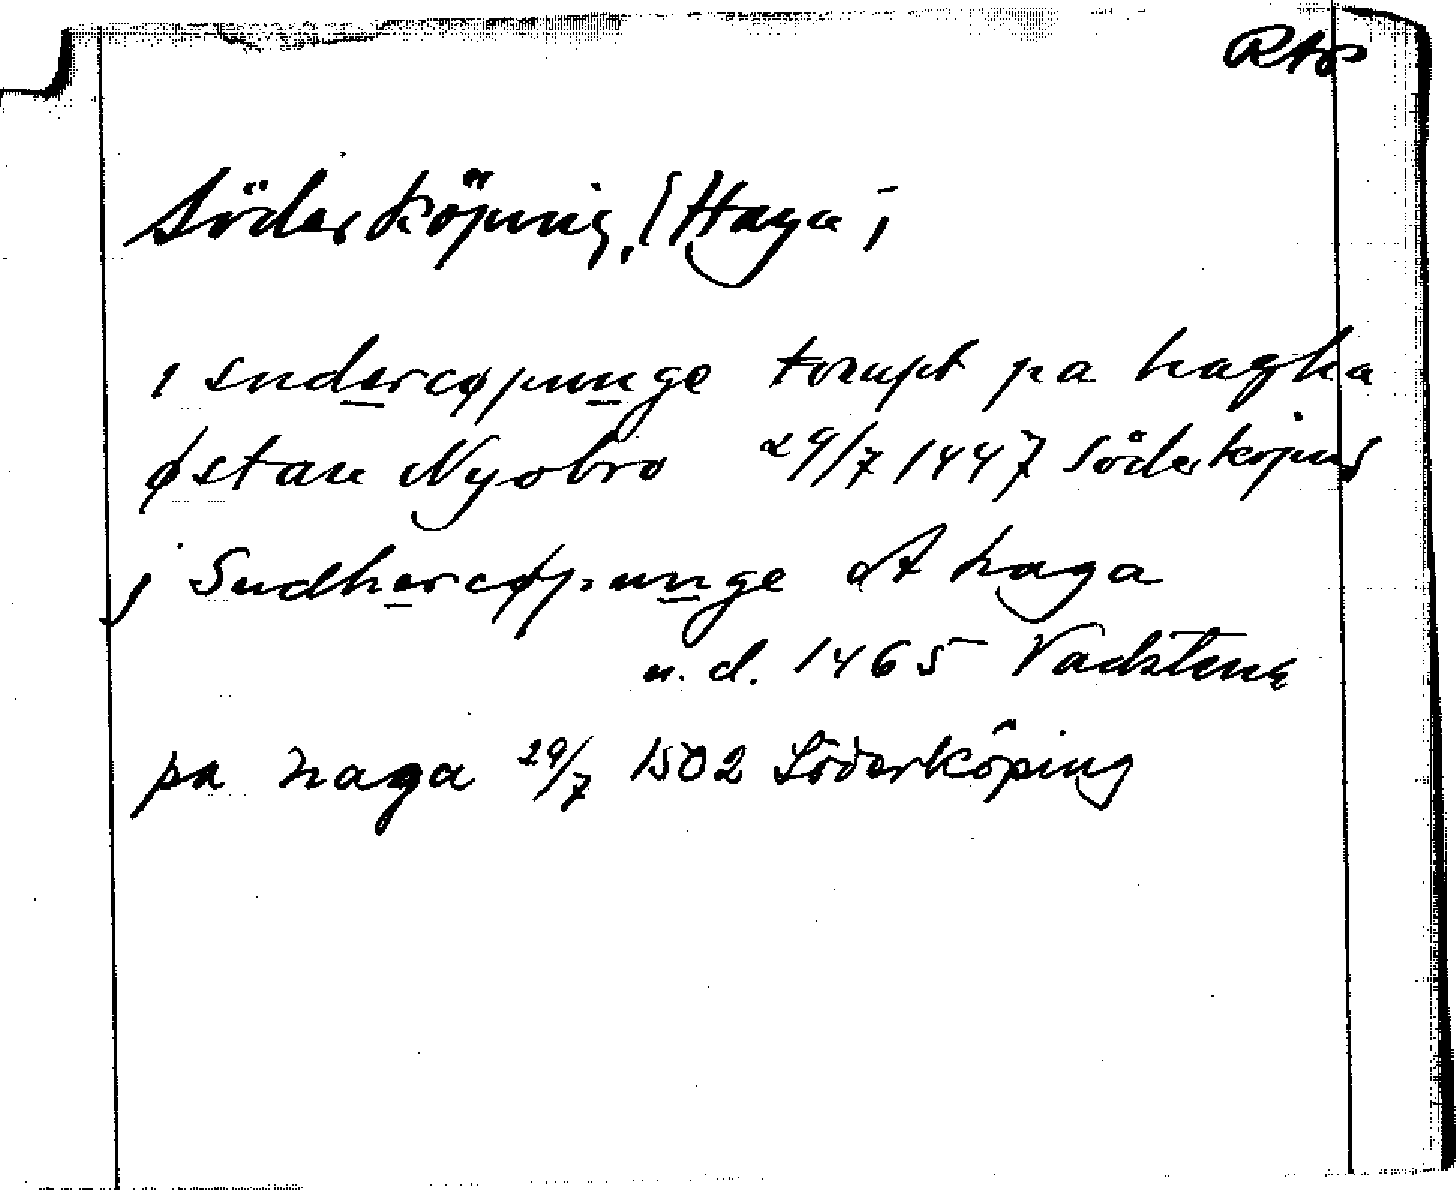 RAp
Söderköping, [Haga]
i sudercøpunge tompt pa hagha
østan Nyobro 29/7 1447 Söderköping
j Sudhercøpunge A haga
u.d. 1465 Vadstena
pa haga 29/7 1502 Söderköping